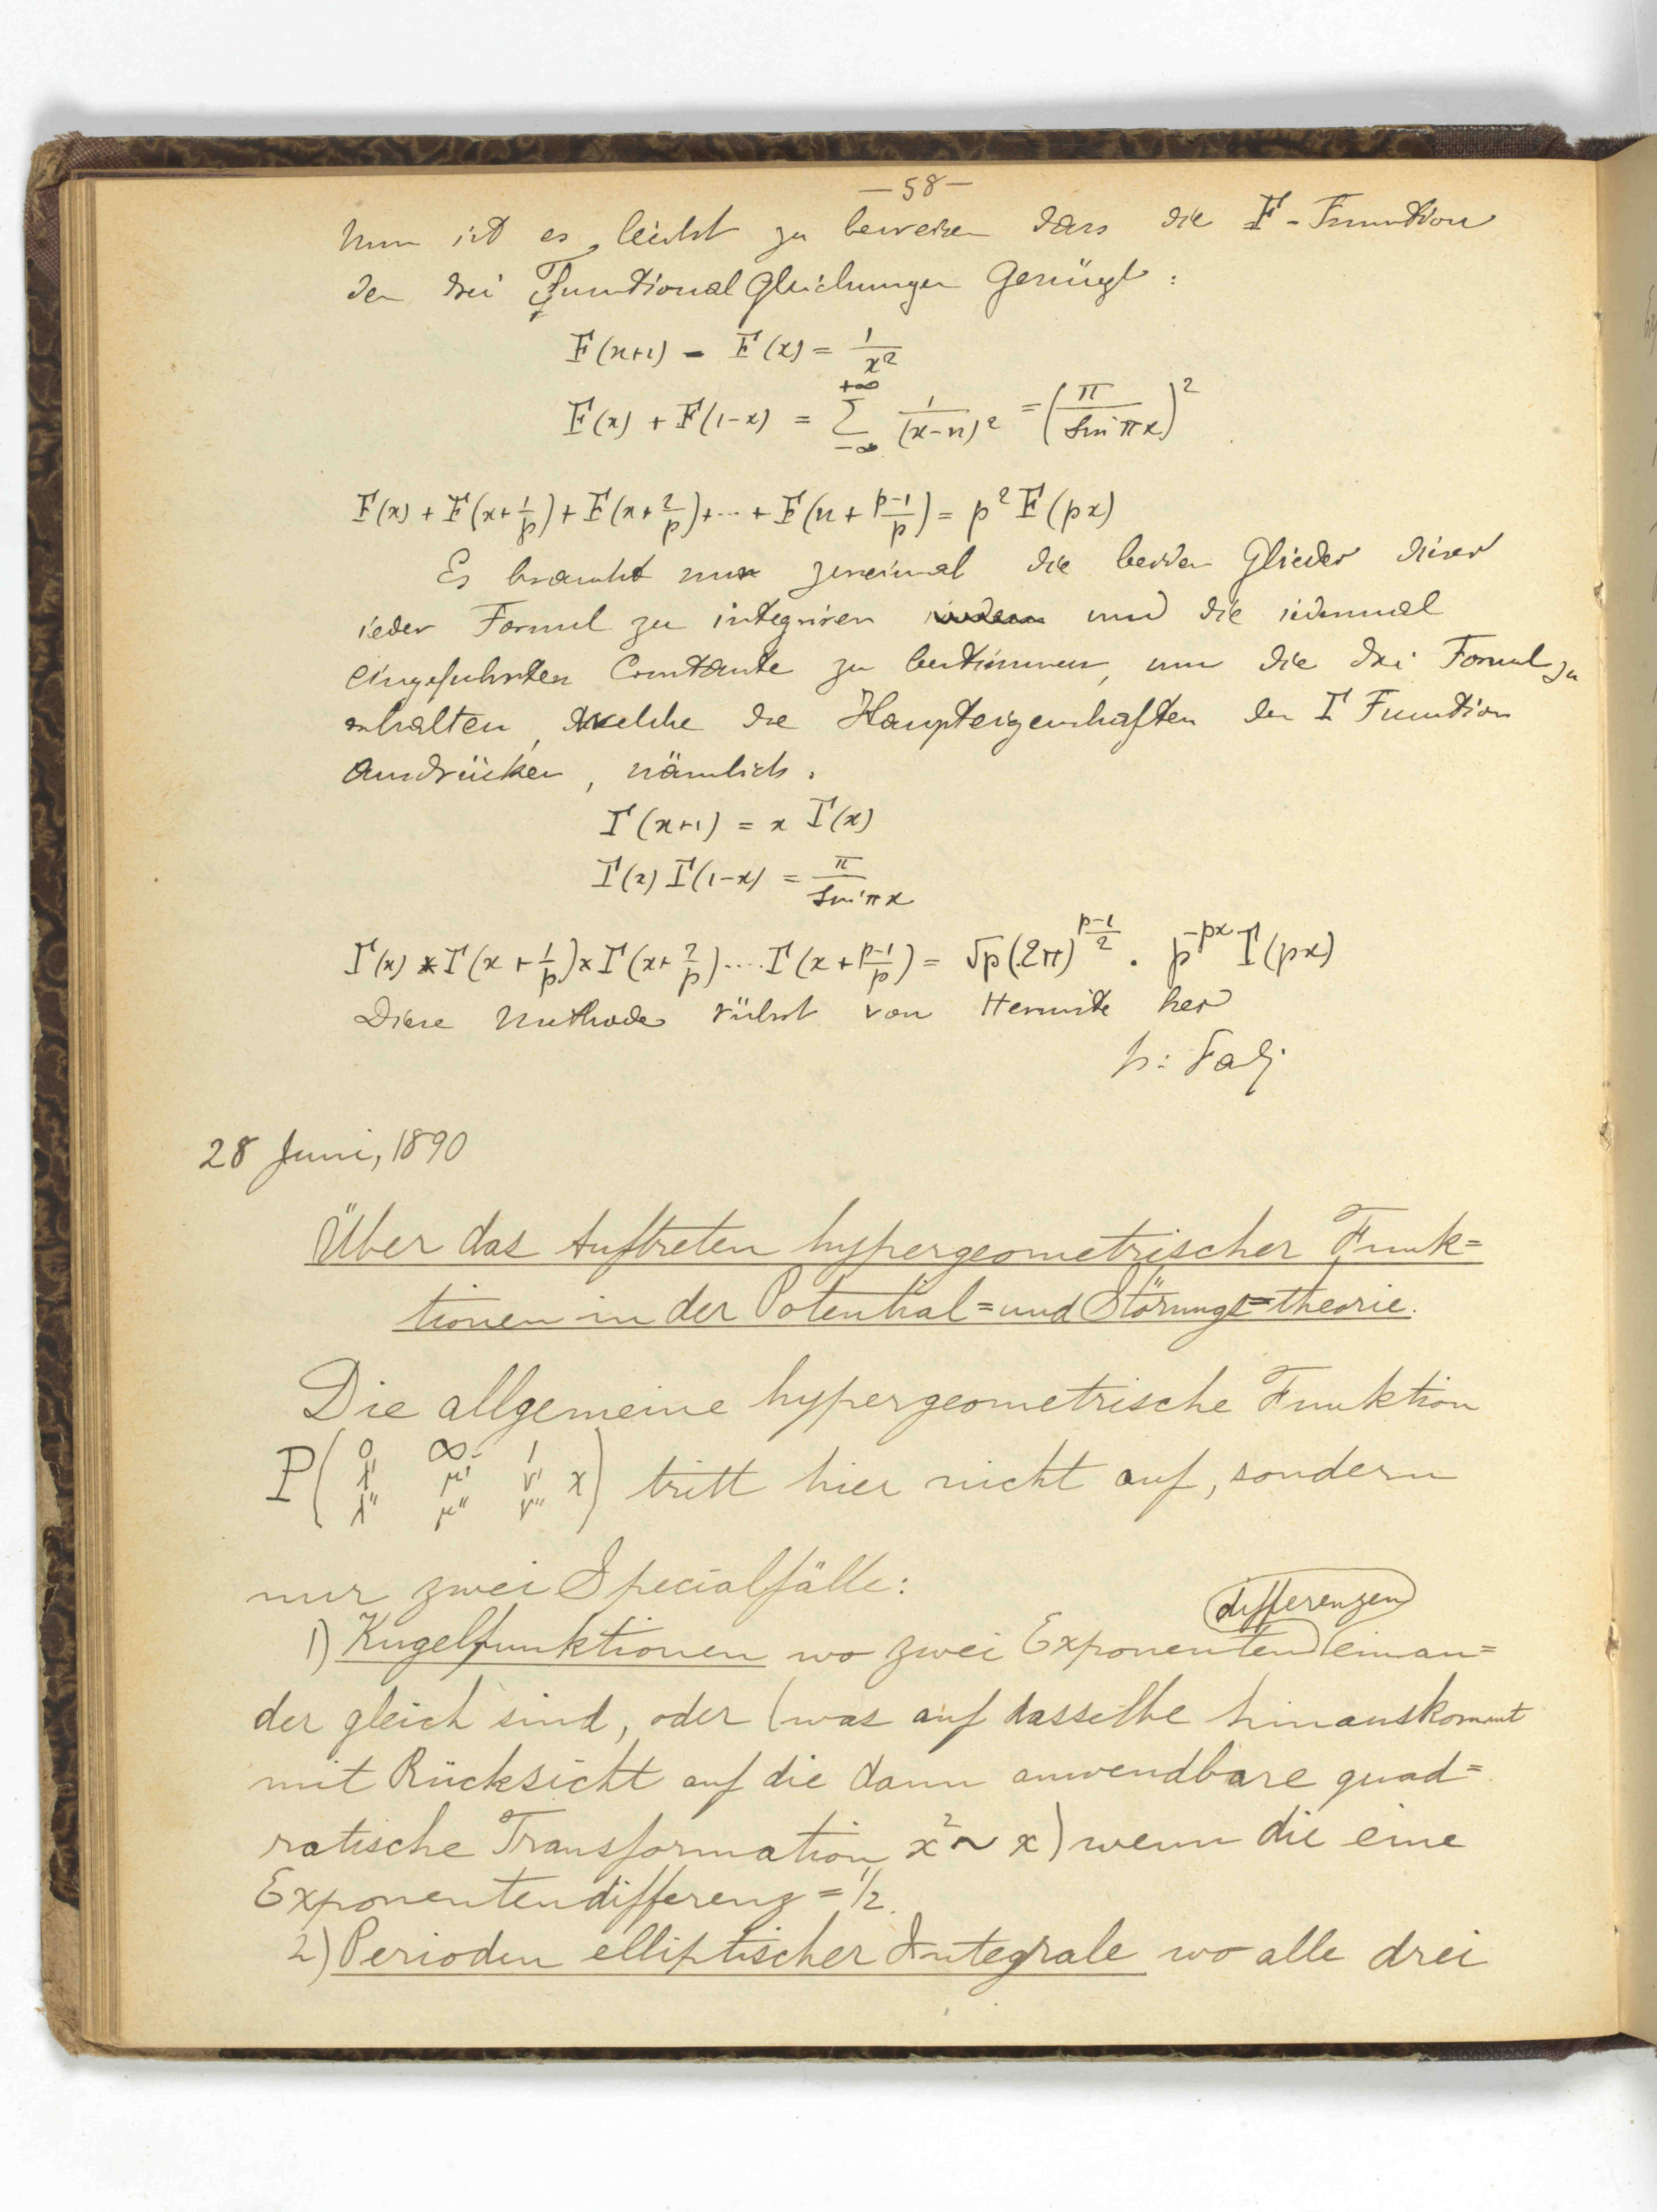 — 58 —
Nun ist es leicht zu beweisen dass die F-Function
den drei Functional Gleichungen Genügt :
F(x+1) - F(x) = 1/x²
F(x) + F(1-x) = ∑_{-∞}^{+∞} 1/(x-n)² = (π/sin πx)²
F(x) + F(x+1/p) + F(x+2/p) + ··· + F(x+(p-1)/p) = p² F(px)
Es braucht nur zweimal die beiden Glieder dieser
ieder Formel zu integriren und die iedesmal
eingefuhrten Constante zu bestimmen, um die drei Formel zu
erhalten, welche die Haupteigenschaften der Γ Function
Ausdrücken, nämlich.
Γ(x+1) = x Γ(x)
Γ(x) Γ(1-x) = π/sin πx
Γ(x) × Γ(x+1/p) × Γ(x+2/p) ···· Γ(x+(p-1)/p) = √p (2π)^{(p-1)/2} . p^{-px} Γ(px)
Diese Methode rührt von Hermite her
28 Juni, 1890
Über das Auftreten hypergeometrischer Funk=
tionen in der Potential=und Störungs=theorie.
Die allgemeine hypergeometrische Funktion
P(0 ∞ 1
λ' μ' ν' x) tritt hier nicht auf, sondern
λ'' μ'' ν''
nur zwei Specialfälle:
differenzen
1) Kugelfunktionen wo zwei Exponenten einan=
der gleich sind, oder (was auf dasselbe hinauskommt
mit Rücksicht auf die dann anwendbare quad=
ratische Transformation x² ~ x) wenn die eine
Exponentendifferenz = 1/2.
2) Perioden elliptischer Integrale wo alle drei